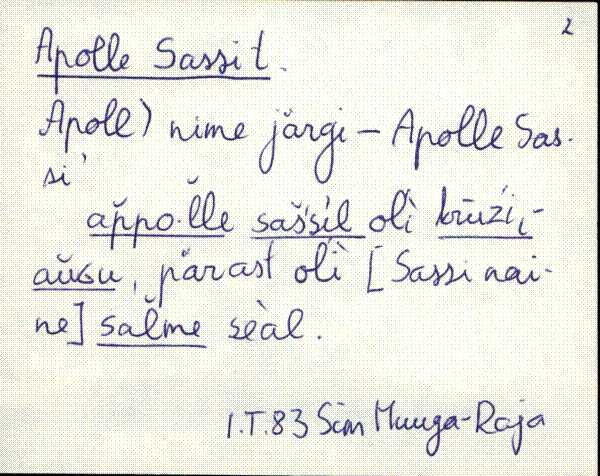 2
Apolle Sassi t.
Apoll) nime järgi – Apolle Sas-
si'
ap̆po·l̆le saš́šil olì krūźi,-
aŭGu, pǟrast olì [Sassi nai-
ne] sal̆me seàl.
I.T.83 Sim Muuga-Raja